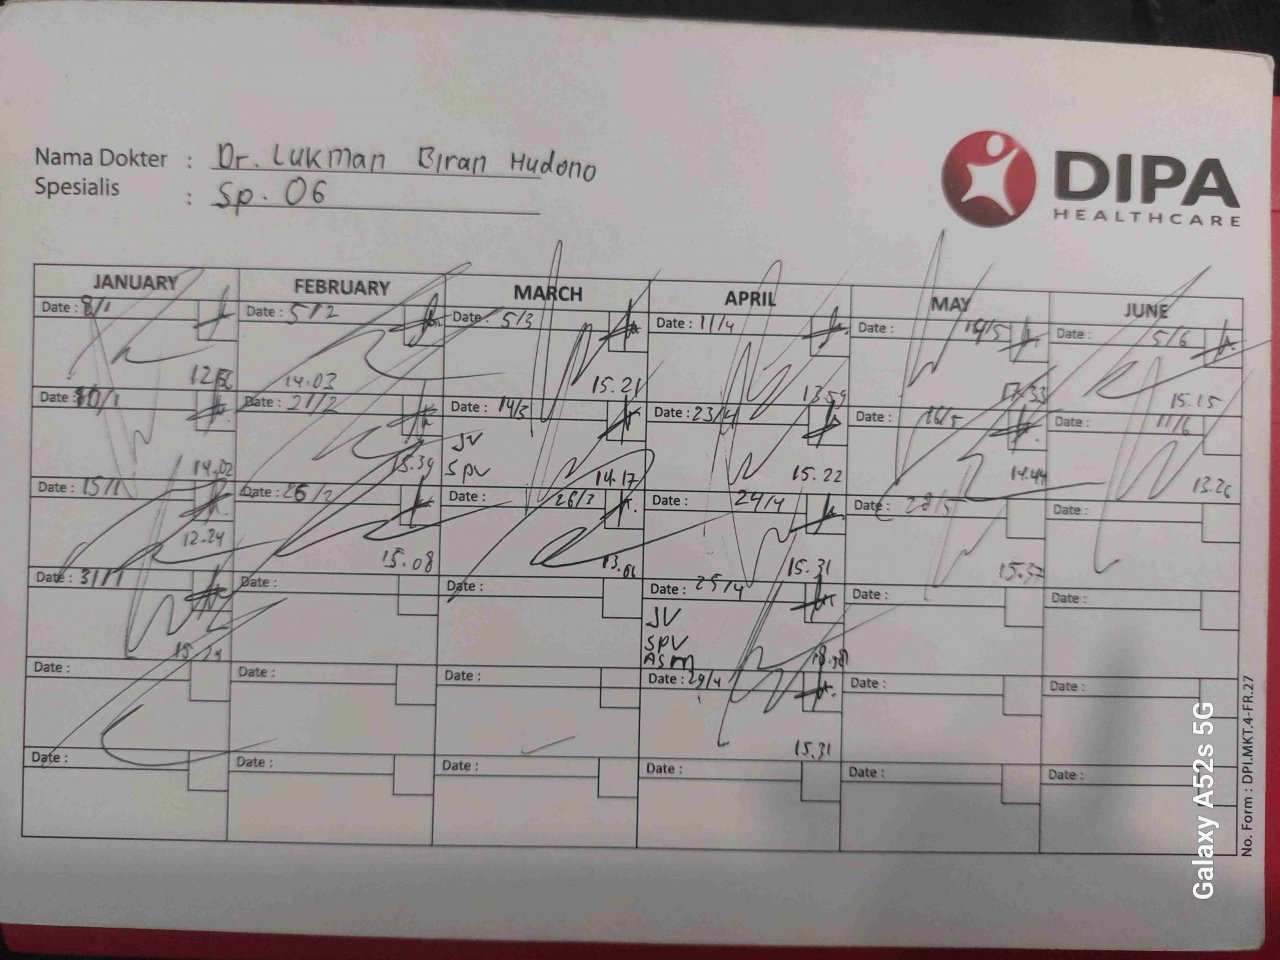 Nama Dokter : Dr. Lukman Biran Hudono
Spesialis : Sp. OG
DIPA
HEALTHCARE
JANUARY FEBRUARY MARCH APRIL MAY JUNE
Date : 8/1 Date : 5/2 Date : 5/3 Date : 11/4 Date : 14/5 Date : 5/6
12.56 14.03 15.21 13.59 17.33 15.15
Date : 10/1 Date : 21/2 Date : 14/3 Date : 23/4 Date : 16/5 Date : 11/6
JV
SPV
14.02 15.39 14.17 15.22 14.44 13.26
Date : 15/1 Date : 26/2 Date : 26/3 Date : 24/4 Date : 28/5 Date :
12.24 15.08 13.06 15.31 15.37
Date : 31/1 Date : Date : Date : 25/4 Date : Date :
JV
SPV
ASM
15.29
Date : Date : Date : Date : 29/4 Date : Date :
15.31
Date : Date : Date : Date : Date : Date :
No. Form : DPI.MKT.4-FR.27
Galaxy A52s 5G